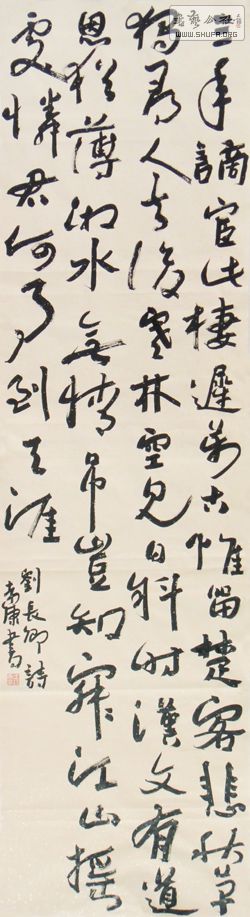 三年謫官此棲遲萬古惟留楚客悲秋草
獨尋人去後寒林空見日斜時漢文有道
恩猶薄湘水無情吊豈知寂々江山搖
處憐君何事到天涯
劉長卿詩
康書
WWW.SHUFA.ORG